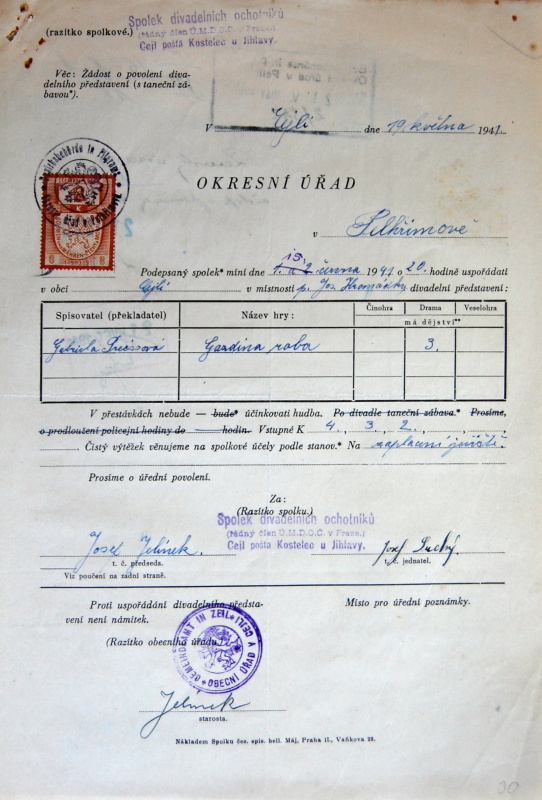 (razítko spolkové.)
Spolek divadelních ochotníků
(řádný člen Ú.M.D.O.Č. v Praze)
Cejl pošta Kostelec u Jihlavy.
Věc: Žádost o povolení diva-
delního představení (s taneční zá-
bavou*).
V Cejli dne 19. května 1941.
OKRESNÍ ÚŘAD
v Pelhřimově
Podepsaný spolek* míní dne 1. a 2. června 1941 o 20. hodině uspořádati
15.
v obci Cejli v místnosti p. Jos. divadelní představení:
Spisovatel (překladatel) Název hry: Činohra Drama Veselohra
má dějství**
Gabriela Preissová Gazdina roba 3.
V přestávkách nebude — bude* účinkovati hudba. Po divadle taneční zábava.* Prosíme,
o prodloužení policejní hodiny do hodin. Vstupné K 4, 3, 2,
Čistý výtěžek věnujeme na spolkové účely podle stanov.* Na zaplacení jeviště.
Prosíme o úřední povolení.
Za:
(Razítko spolku.)
Spolek divadelních ochotníků
(řádný člen Ú.M.D.O.Č. v Praze.)
Cejl pošta Kostelec u Jihlavy.
Josef Jelínek. Josef Suchý
t. č. předseda. t. č. jednatel.
Viz poučení na zadní straně.
Proti uspořádání divadelního předsta-
vení není námitek.
Místo pro úřední poznámky.
(Razítko obecního úřadu.)
GEMEINDEAMT IN ZEIL * OBECNÍ ÚŘAD V CEJLI *
Jelínek
starosta.
Nákladem Spolku čes. spis. bell. Máj, Praha II., Vaňkova 28.
30